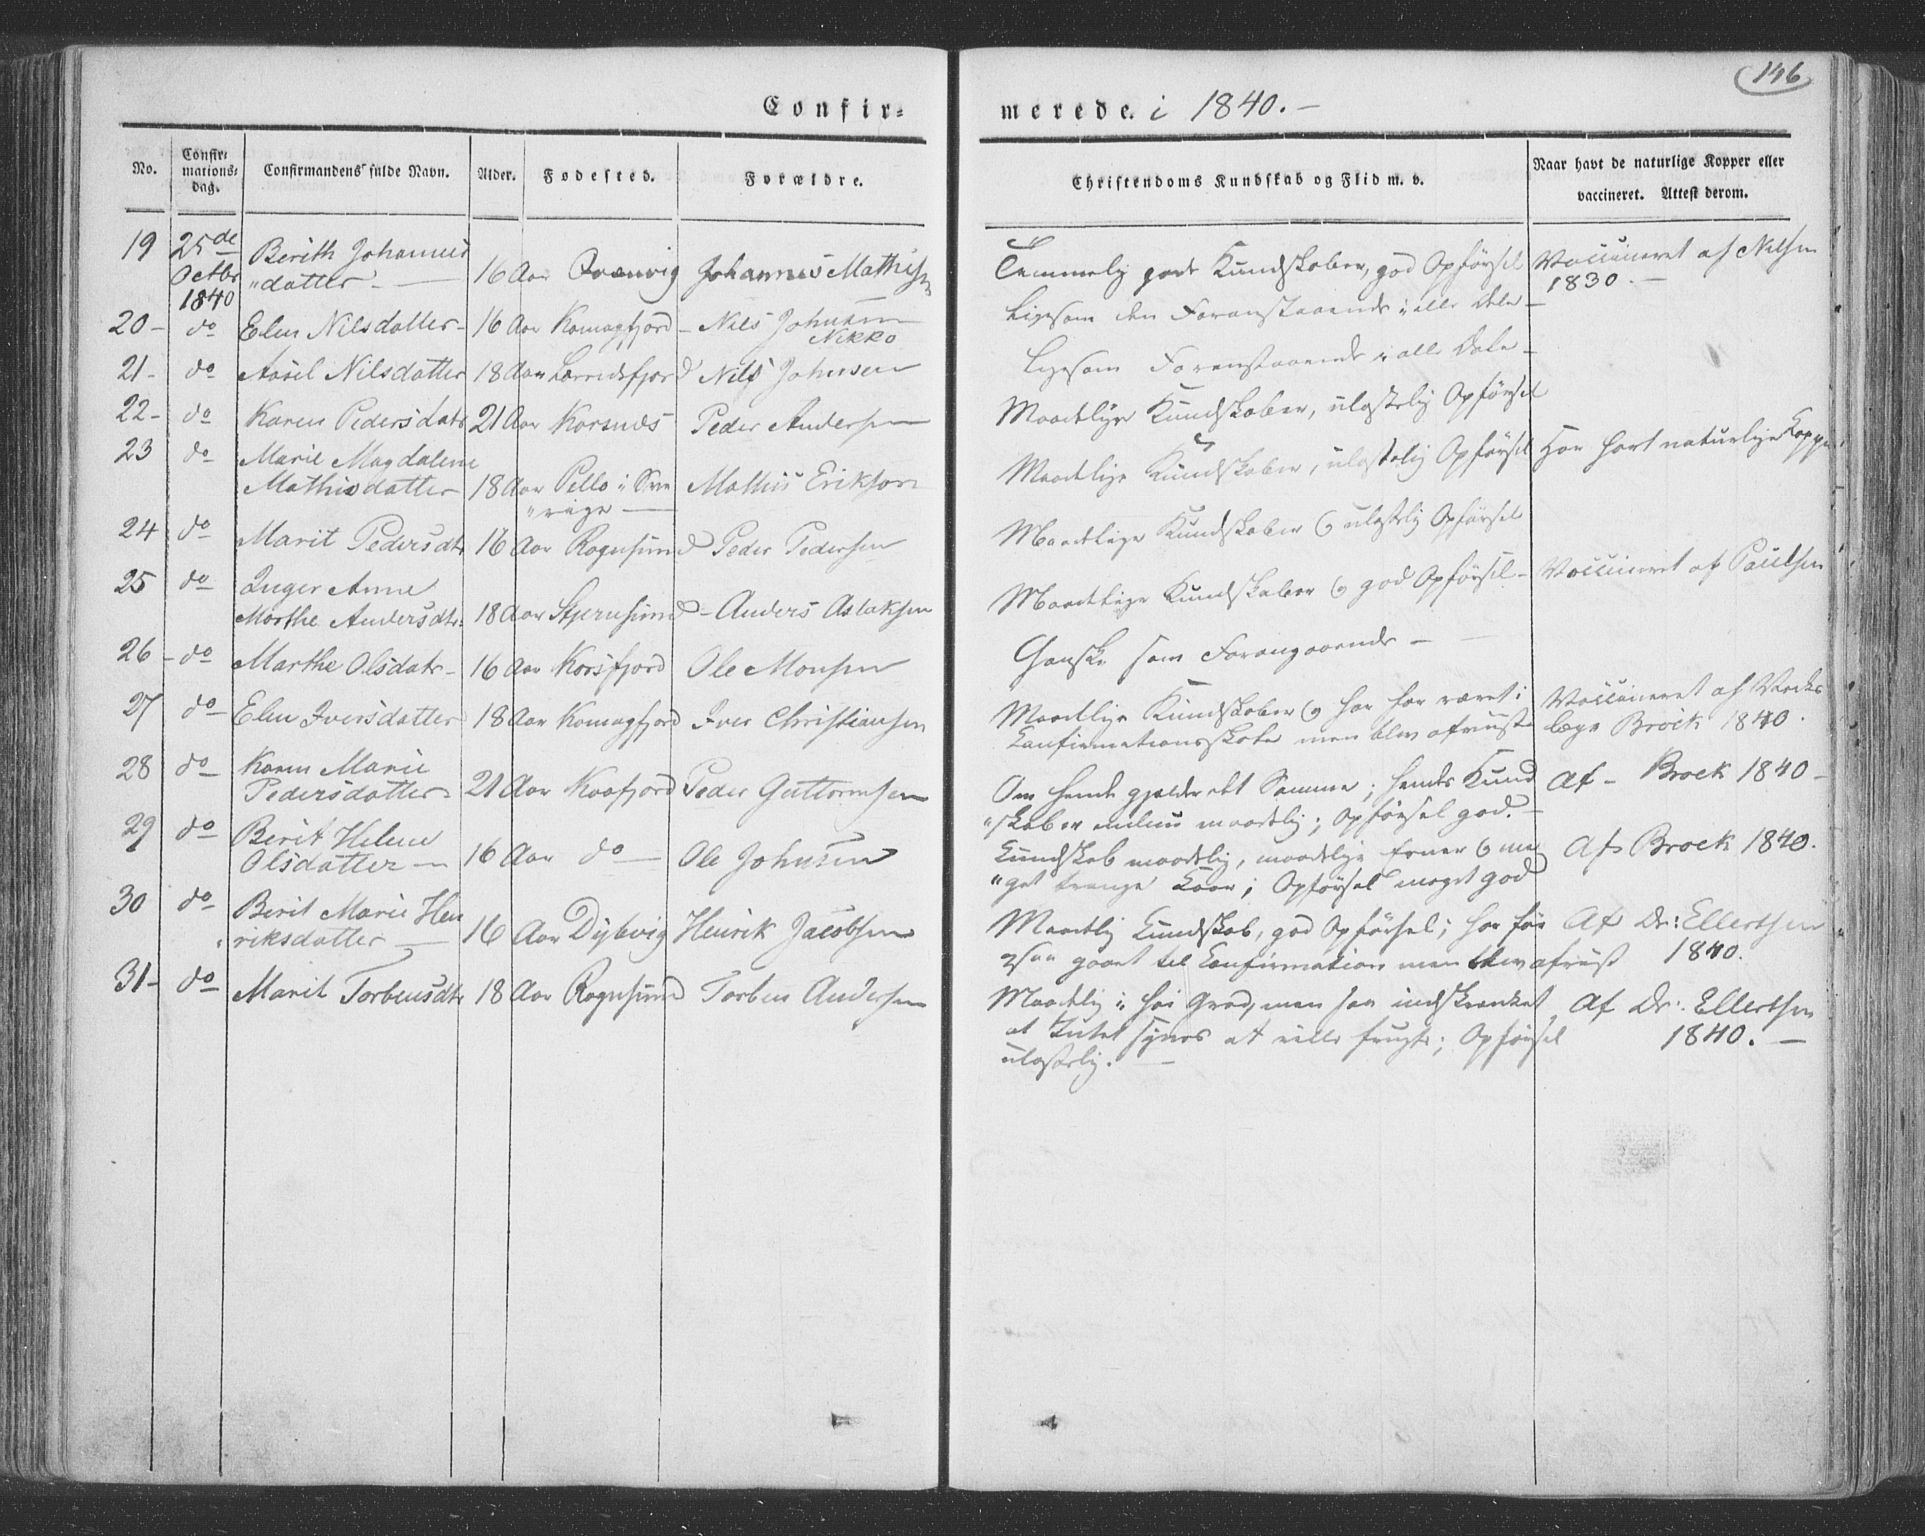 146
Confir=
merede. i 1840. —
No.
Confir=
mations=
dag.
Confirmandens fulde Navn.
Alder.
Fødested.
Forældre.
Christendoms Kundskab og Flid m. v.
Naar havt de naturlige Kopper eller
vaccineret. Attest derom.
19 25de Berith Johannes 16 Aar Johannes Mathis
Octbr "datter — Temmelig gode Kundskaber, god Opførsel Vaccineret af Nilsen
1840 1830. —
20 – do Elen Nilsdatter – 16 Aar Komagfjord – Nils Johnsen Ligesom den Foranstaaende i alle Dele –
Nikko
21 – do Nilsdatter 18 Aar Nils Johnsen Ligesom Foranstaaende i alle Dele –
22 – do Karen Pedersdatr 21 Aar Korsnes Peder Andersen Maadelige Kundskaber, ulastelig Opførsel
23 do Marie Magdalene
Mathisdatter – 18 Aar Pello i Sve Mathis Erikson Maadelige Kundskaber, ulastelig Opførsel Har havt naturlige Kopper
"rige —
24 – do Marit Pedersdtr 16 Aar Rognsund Peder Pedersen Maadelige Kundskaber og ulastelig Opførsel
25 do Inger Anne
Marthe Andersdtr. 18 Aar Stjernsund – Anders Aslaksen Maadelige Kundskaber og god Opførsel – Vaccineret af Paulsen
26 – do Marthe Olsdatr – 16 Aar Korsfjord Ole Monsen Ganske som Forangaaende –
27 do Elen Iversdatter 18 Aar Komagfjord Iver Christiansen Maadelige Kundskaber og har før været i Vaccineret af Værks
Confirmationsskole men blev afviist læge Brock 1840.
28 do Karen Marie
Pedersdatter 21 Aar Kaafjord Peder Guttormsen Om hende gjælder det Samme; hendes Kund Af – Brock 1840 –
"skaber maadelig; Opførsel god. –
29 do Berit Helene
Olsdatter — 16 Aar do — Ole Johnsen Kundskab maadelig, maadelige Evner og me Af Brock 1840.
"get trange Kaar; Opførsel meget god
30 do Berit Marie Hen
riksdatter — 16 Aar Dybvig Henrik Jacobsen Maadelig Kundskab, god Opførsel; har før Af Dr: Ellertsen
gaaet til Confirmation men blev afviist 1840.
31 – do Marit Torbensdtr 18 Aar Rognsund Torben Andersen Maadelig i høi Grad, men saa indskrænket Af Dr: Ellertsen
at Intet synes at ville frugte; Opførsel 1840. —
ulastelig. —